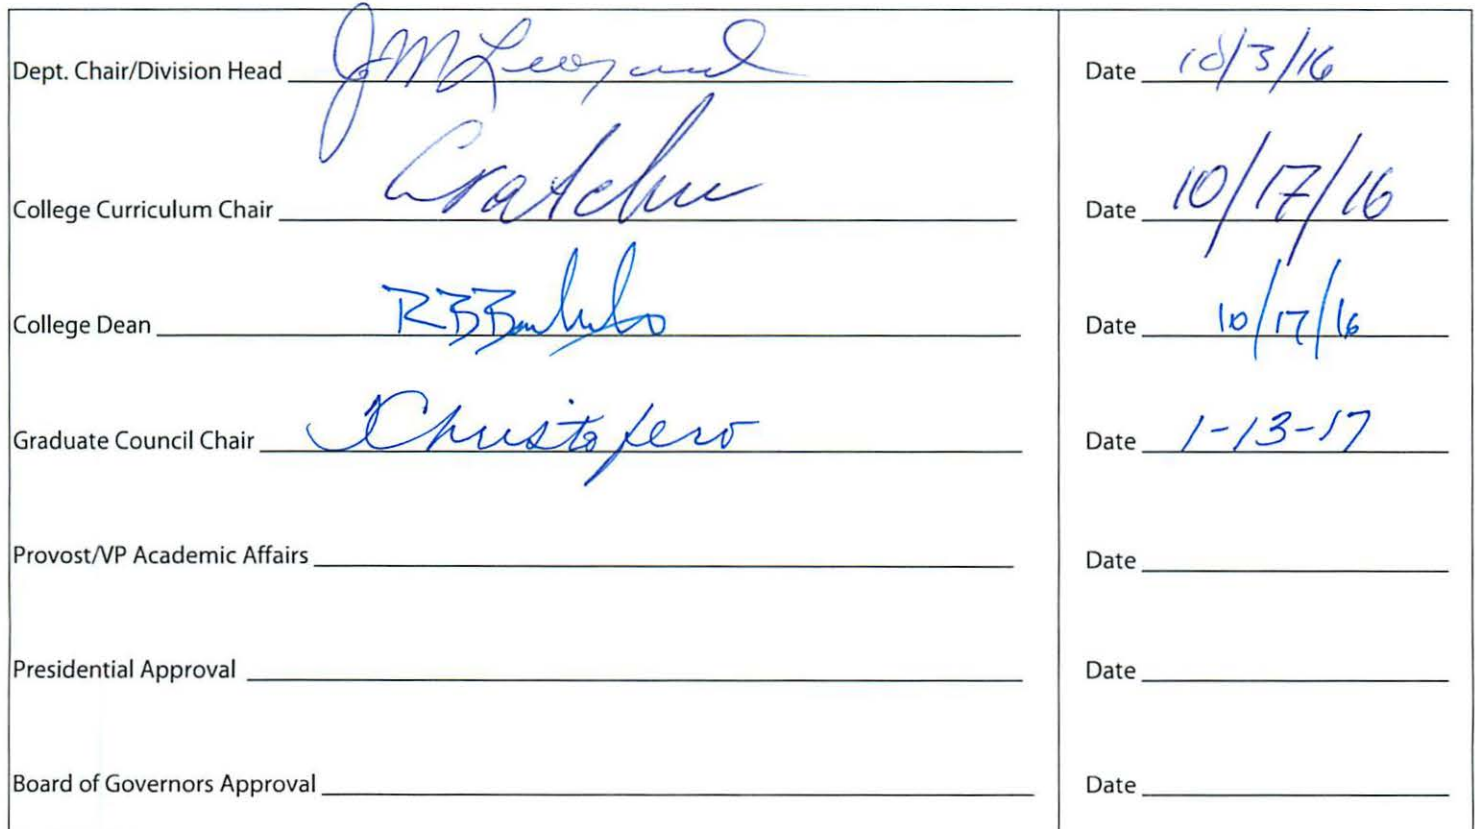 Dept. Chair/Division Head Date 10/3/16
College Curriculum Chair Date 10/17/16
College Dean Date 10/17/16
Graduate Council Chair Christofero Date 1-13-17
Provost/VP Academic Affairs Date
Presidential Approval Date
Board of Governors Approval Date